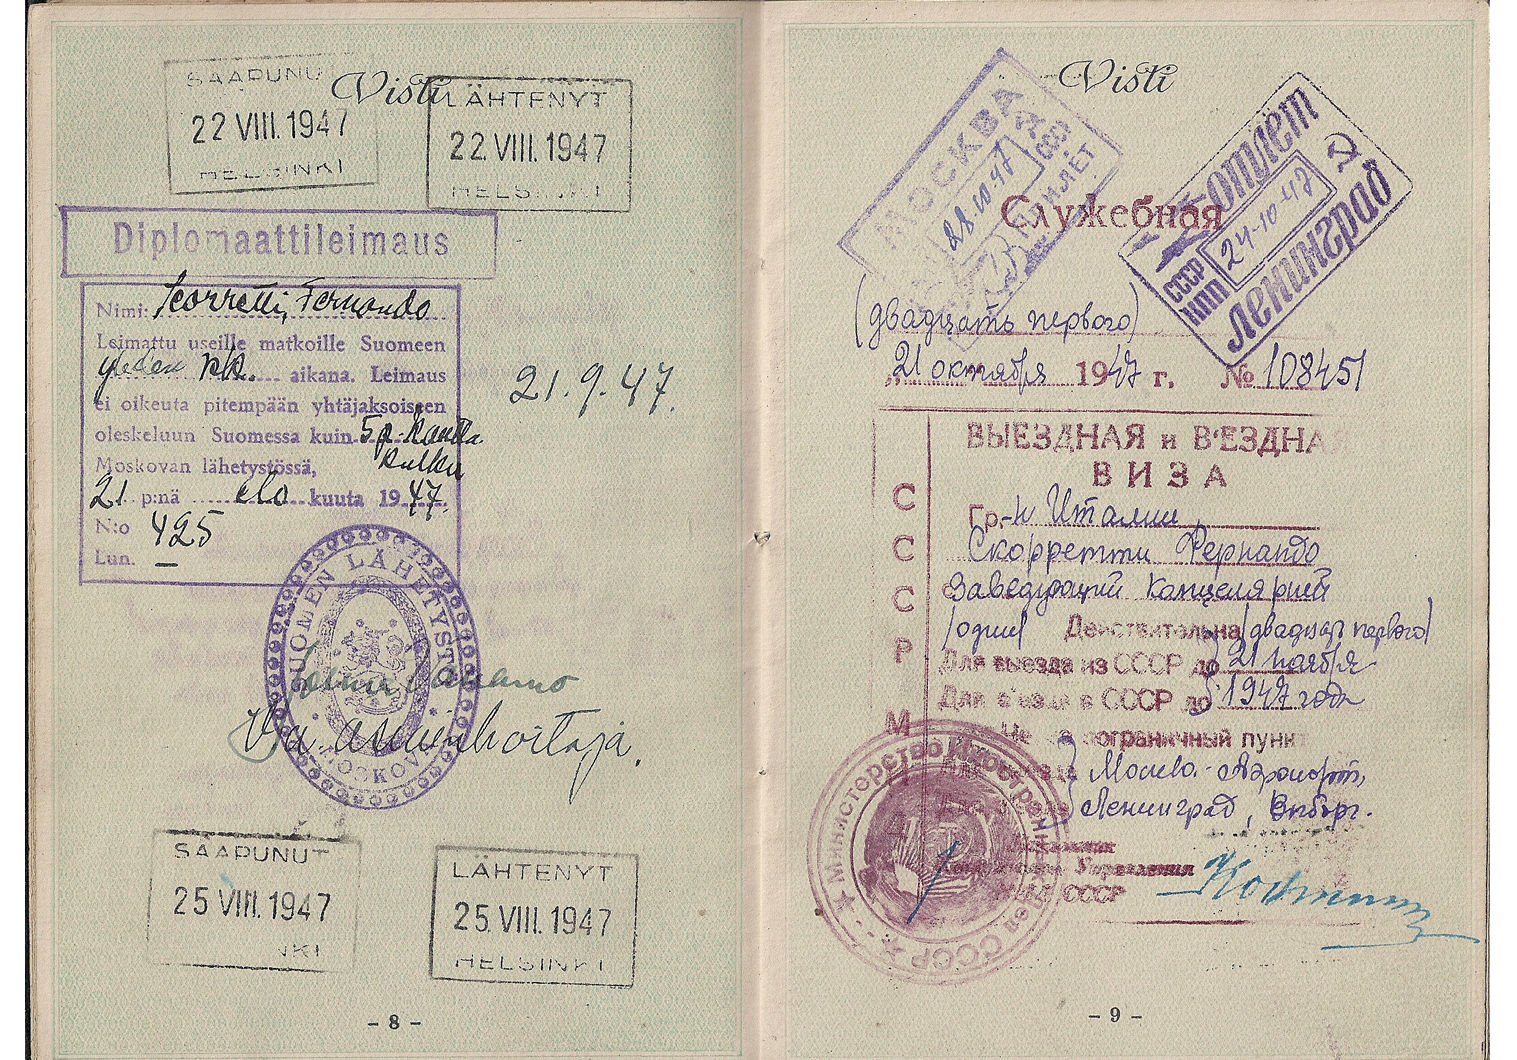 Visti
SAAPUNU
22 VIII. 1947
HELSINKI
LÄHTENYT
22. VIII. 1947
HELSINKI
Diplomaattileimaus
Nimi: Scorretti, Fernando
Leimattu useille matkoille Suomeen
yhden kk. aikana. Leimaus
ei oikeuta pitempään yhtäjaksoiseen
oleskeluun Suomessa kuin 5 p.
Moskovan lähetystössä,
21 p:nä elo kuuta 1947.
N:o 425
Lun. –
21.9.47.
SUOMEN LÄHETYSTÖ
MOSKOVA
V.a. asiainhoitaja.
SAAPUNUT
25 VIII. 1947
NKI
LÄHTENYT
25. VIII. 1947
HELSINKI
- 8 -
Visti
МОСКВА
СССР
28.10.47
ПРИЛЁТ
отлет
24-10-47
СССР
КПП
Ленинград
Служебная
(двадцать первого)
„21" октября 1947 г. № 108451
ВЫЕЗДНАЯ и В'ЕЗДНАЯ
ВИЗА
СССР
Гр-н Италии
Скорретти Фернандо
Заведующий канцелярией
/один/ Действительна (двадцать первого)
Для выезда из СССР до 21 ноября
Для в'езда в СССР до 1947 года
Через пограничный пункт
Москва-Аэропорт,
Ленинград, Выборг.
Управления
МИД СССР
Министерство Иностранных Дел СССР
- 9 -